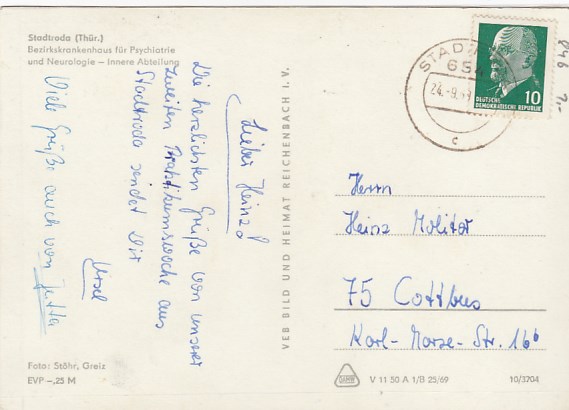 Stadtroda (Thür.)
Bezirkskrankenhaus für Psychiatrie
und Neurologie — Innere Abteilung
Lieber Heinz!
Die herzlichsten Grüße von unserer
zweiten Praktikumswoche aus
Stadtroda sendet Dir
Ursel
Viele Grüße auch von Jutta
Foto: Stöhr, Greiz
EVP –,25 M
VEB BILD UND HEIMAT REICHENBACH I. V.
24.-9.
c
DEUTSCHE
DEMOKRATISCHE REPUBLIK
10
Herrn
Heinz Molitor
75 Cottbus
Karl-Marx-Str. 16b
V 11 50 A 1/B 25/69
10/3704